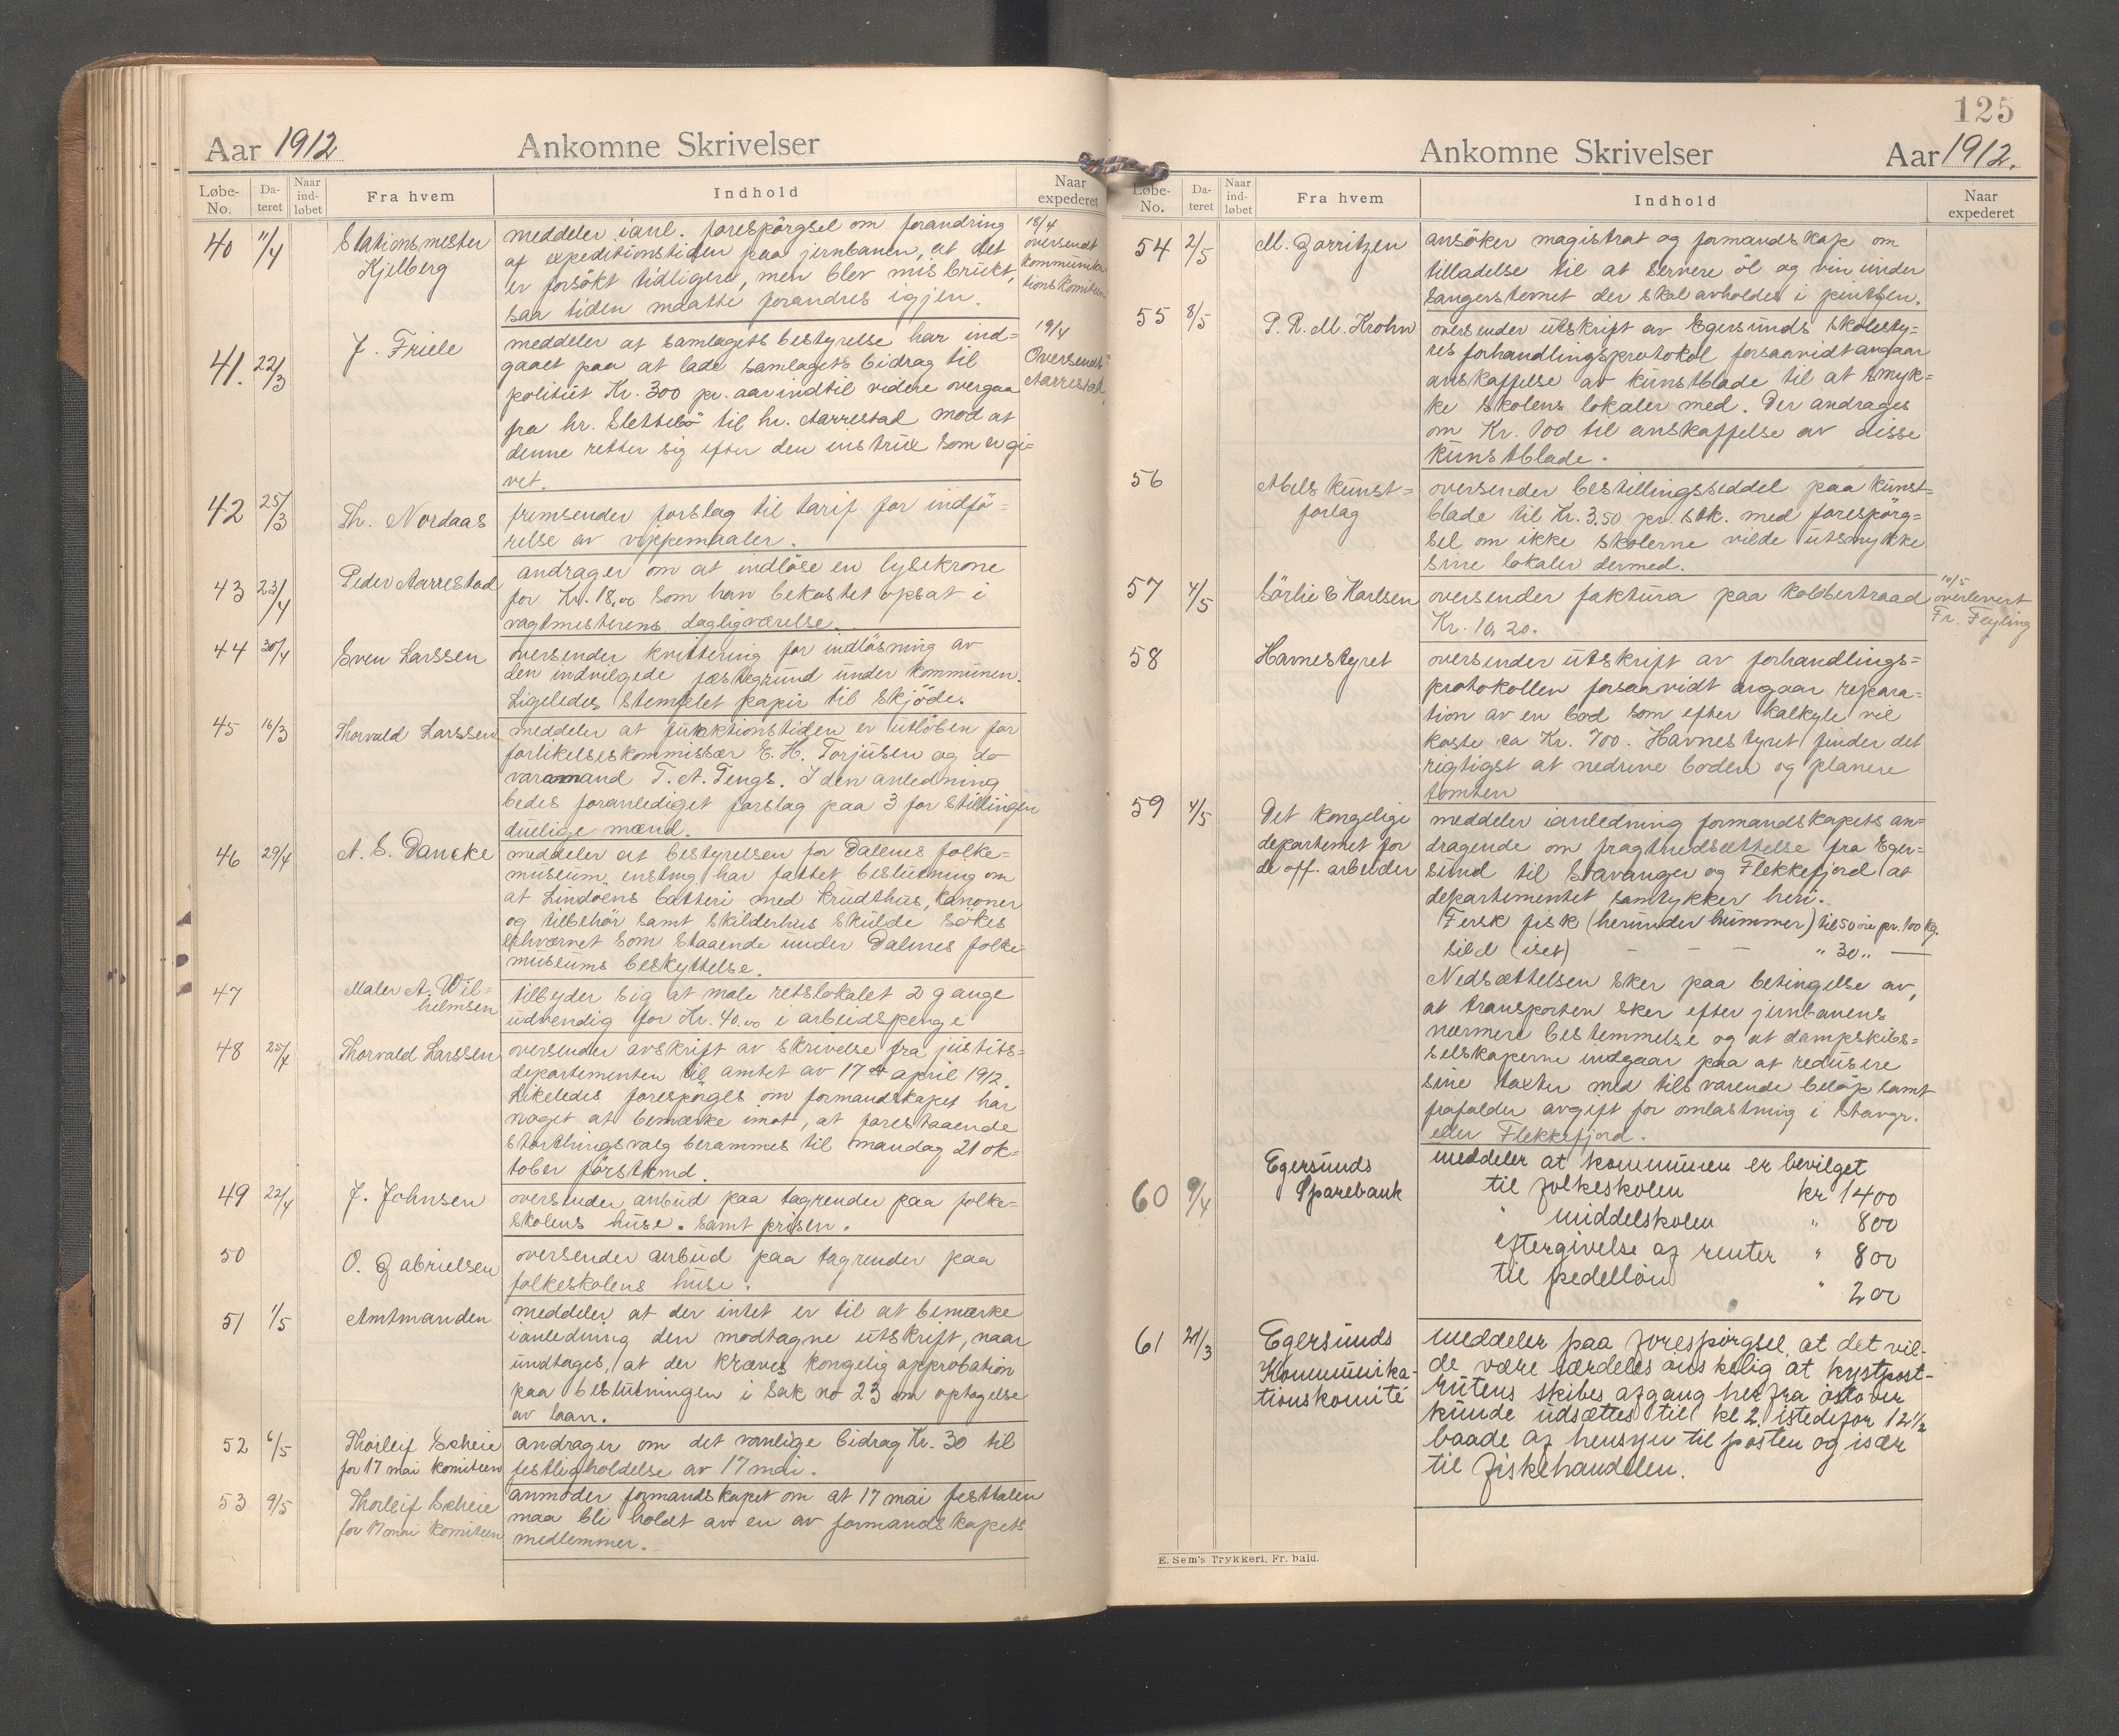 Aar 1912 Ankomne Skrivelser
Løbe-No. Da-teret Naar ind-løbet Fra hvem Indhold Naar expederet
40 11/4 Stationsmester Kjelberg meddeler i anl. forespørgsel om forandring
af expeditionstiden paa jernbanen, at det
er forsøkt tidligere, men blev misbrukt,
saa tiden maatte forandres igjen.
18/4 oversendt kommunika-tionskomiteen
41. 22/3 J. Friele meddeler at samlagets bestyrelse har ind=
gaaet paa at lade samlagets bidrag til
politiet Kr. 300 pr. aar indtil videre overgaa
fra hr. Slettebø til hr. Aarrestad mod at
denne retter sig efter den instrux som er gi=
vet.
19/4 Oversendt Aarrestad
42 25/3 Th. Nordaas fremsender forslag til tarif for indfø=
relse av vippemaaler.
43 23/4 Peder Aarrestad andrager om at indløse en lysekrone
for Kr. 18,00 som han bekostet opsat i
vagtmesterens dagligværelse.
44 30/4 Sven Larssen oversender kvittering for indløsning av
den indvilgede fæstegrund under kommunen.
Ligeledes stemplet papir til skjøde.
45 16/3 Thorvald Larssen meddeler at funktionstiden er utløben for
forlikelseskommissær E. H. Torjusen og do
varamand T. A. Tengs. I den anledning
bedes foranlediget forslag paa 3 for stillingen
duelige mænd.
46 29/4 A. S. Dancke meddeler at bestyrelsen for Dalenes folke=
museum enstmg. har fattet beslutning om
at Lindøens batteri med krudthus, kanoner
og tilbehør samt skilderhus skulde søkes
erhværvet som staaende under Dalenes folke=
museums beskyttelse.
47 Maler A. Wil=helmsen tilbyder sig at male retslokalet 2 gange
udvendig for Kr. 40.00 i arbeidspenge
48 25/4 Thorvald Larssen oversender avskrift av skrivelse fra justits=
departementen til amtet av 17de april 1912.
Likeledes forespørges om formandskapet har
noget at bemærke imot, at forestaaende
storthingsvalg berammes til mandag 21 ok=
tober førstkmd.
49 22/4 J. Johnsen oversender anbud paa tagrender paa folke=
skolens huse. samt prisen.
50 O. Gabrielsen oversender anbud paa tagrender paa
folkeskolens huse.
51 1/5 Amtmanden meddeler at der intet er til at bemærke
i anledning den modtagne utskrift, naar
undtages, at der kræves kongelig approbation
paa beslutningen i sak no 23 om optagelse
av laan.
52 6/5 Thorleif Scheie for 17 mai komiteen andrager om det vanlige bidrag Kr. 30 til
festligholdelse av 17 mai.
53 9/5 Thorleif Scheie for 17 mai komiteen anmoder formandskapet om at 17 mai festtalen
maa bli holdt av en av formandskapets
medlemmer.
125
Ankomne Skrivelser Aar 1912.
Løbe-No. Da-teret Naar ind-løbet Fra hvem Indhold Naar expederet
54 2/5 M. Gorritzen ansøker magistrat og formandskap om
tilladelse til at servere øl og vin under
sangerstevnet der skal avholdes i pintsen.
55 8/5 P. R. M. Krohn oversender utskrift av Egersunds skolesty=
res forhandlingsprotokol forsaavidt angaar
anskaffelse av kunstblade til at smyk=
ke skolens lokaler med. Der andrages
om Kr. 100 til anskaffelse av disse
kunstblade.
56 Abels kunst=forlag oversender bestillingsseddel paa kunst=
blade til Kr. 3.50 pr. stk. med forespørg=
sel om ikke skolerne vilde utsmykke
sine lokaler dermed.
57 4/5 Sørlie & Karlsen oversender faktura paa kobbertraad
Kr. 10,20.
10/5 overlevert Fr. Feyling
58 Havnestyret oversender utskrift av forhandlings=
protokollen forsaavidt angaar repara=
tion av en bod som efter kalkyle vil
koste ca Kr. 700. Havnestyret finder det
rigtigst at nedrive boden og planere
tomten
59 4/5 Det kongelige departemet for de off. arbeider meddeler i anledning formandskapets an=
dragende om fragtnedsættelse fra Eger=
sund til Stavanger og Flekkefjord at
departementet samtykker heri.
Fersk fisk (herunder hummer) til 50 øre pr. 100 kg.
sild (iset) — — — " 30 " —
Nedsættelsen sker paa betingelse av,
at transporten sker efter jernbanens
nærmere bestemmelse og at dampskibs=
selskaperne indgaar paa at redusere
sine taxter med tilsvarende beløp samt
frafalder avgift for omlastning i Stavgr.
eller Flekkefjord.
60 9/4 Egersunds Sparebank meddeler at kommunen er bevilget
til folkeskolen kr 1400
" middelskolen " 800
eftergivelse af renter " 800
til pedelløn " 200
61 21/3 Egersunds Kommunika-tionskomité meddeler paa forespørgsel, at det vil-
de være særdeles ønskelig at kystpost-
rutens skibes afgang herfra østover
kunde udsættes til kl 2 istedefor 12 1/2
baade af hensyn til posten og især
til fiskehandelen.
E. Sem's Trykkeri, Fr.hald.